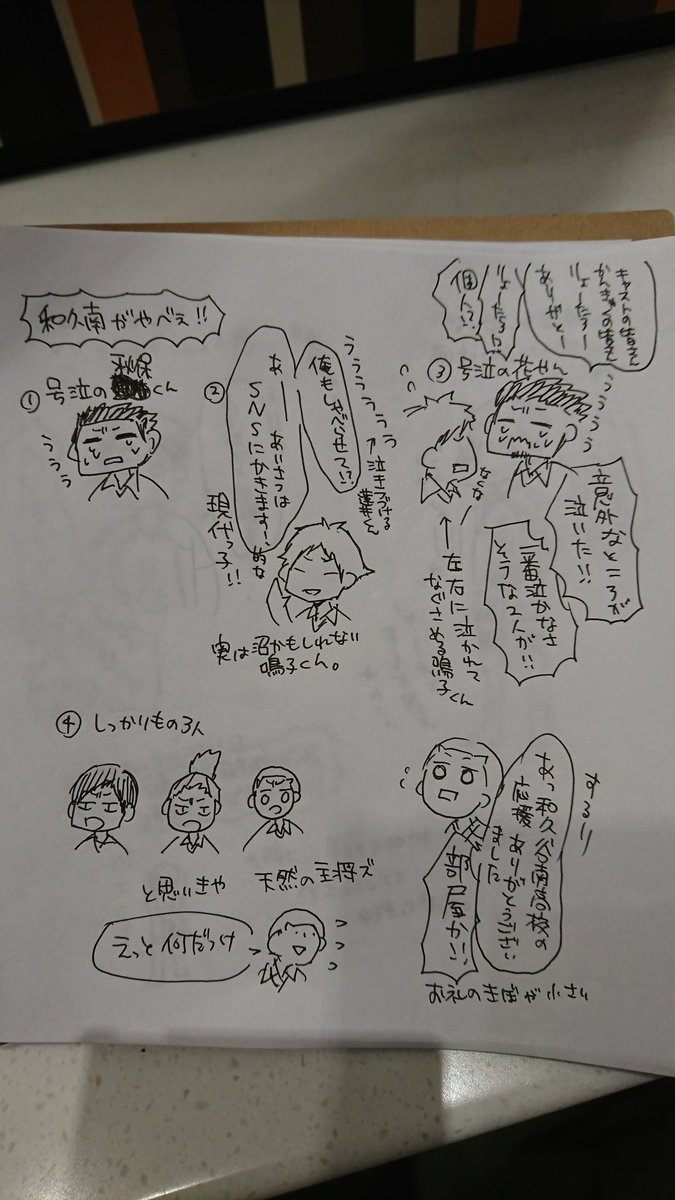 和久南がやべぇ!!
① 号泣の秋保くん
ううう
②
俺もしゃべらせて!?
あーー あいさつは
SNSにかきます!、的な
現代っ子!!
ううううう
← 泣きつづける
実は沼かもしれない
鳴子くん。
③ 号泣の花やん
キャストの皆さん
かんきゃくの皆さん
りょーたろー
ありがとー
りょーたろー!?
個人!?
うううう
意外なところが
泣いた!!
一番泣かなさ
そうな2人が!!
← 左右に泣かれて
なぐさめる鳴子くん
④ しっかりもの3人
と思いきや 天然の主将ズ
えっと何だっけ
和久谷南高校の
応援ありがとうござい
ました
部屋か!!
お礼のきぼが小さい